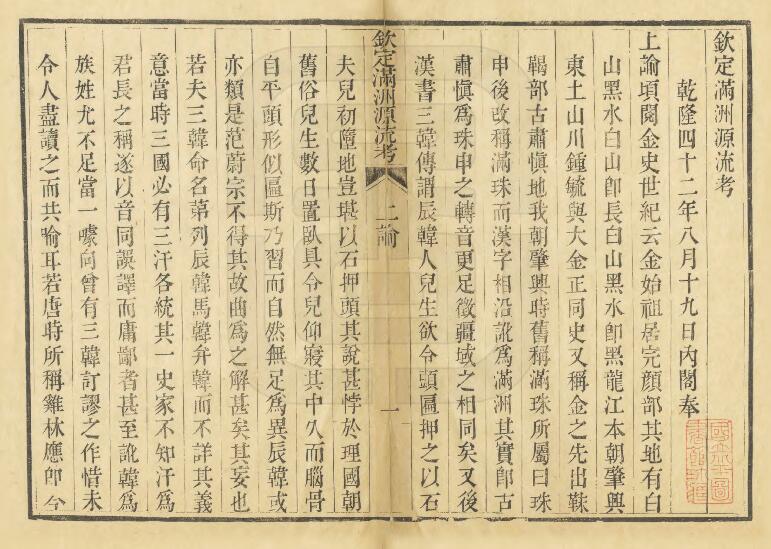 欽定滿洲源流考
乾隆四十二年八月十九日內閣奉
上諭頃閱金史世紀云金始祖居完顏部其地有白
山黑水白山卽長白山黑水卽黑龍江本朝肇興
東土山川鍾毓與大金正同史又稱金之先出靺
鞨部古肅愼地我朝肇興時舊稱滿珠所屬曰珠
申後改稱滿珠而漢字相沿訛爲滿洲其實卽古
肅愼爲珠申之轉音更足徵疆域之相同矣又後
漢書三韓傳謂辰韓人兒生欲令頭匾押之以石
欽定滿洲源流考
上諭
一
夫兒初墮地豈堪以石押頭其說甚悖於理國朝
舊俗兒生數日置臥具令兒仰寢其中久而腦骨
自平頭形似匾斯乃習而自然無足爲異辰韓或
亦類是范蔚宗不得其故曲爲之解甚矣其妄也
若夫三韓命名第列辰韓馬韓弁韓而不詳其義
意當時三國必有三汗各統其一史家不知汗爲
君長之稱遂以音同誤譯而庸鄙者甚至訛韓爲
族姓尤不足當一噱向曾有三韓訂謬之作惜未
令人盡讀之而共喻耳若唐時所稱雞林應卽今